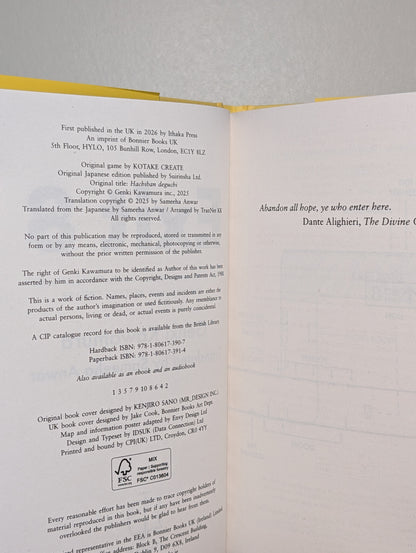 First published in the UK in 2026 by Ithaka Press
An imprint of Bonnier Books UK
5th Floor, HYLO, 105 Bunhill Row, London, EC1Y 8LZ
Original game by KOTAKE CREATE
Original Japanese edition published by Suirinsha Ltd.
Original title: Hachiban deguchi
Copyright © Genki Kawamura inc, 2025
Translation copyright © 2025 by Sameerha Anwar
Translated from the Japanese by Sameerha Anwar / Arranged by TranNet KK
All rights reserved.
No part of this publication may be reproduced, stored or transmitted in any
form or by any means, electronic, mechanical, photocopying or otherwise,
without the prior written permission of the publisher.
The right of Genki Kawamura to be identified as Author of this work has been
asserted by him in accordance with the Copyright, Designs and Patents Act, 1988.
This is a work of fiction. Names, places, events and incidents are either the
products of the author's imagination or used fictitiously. Any resemblance to
actual persons, living or dead, or actual events is purely coincidental.
A CIP catalogue record for this book is available from the British Library.
Hardback ISBN: 978-1-80617-390-7
Paperback ISBN: 978-1-80617-391-4
Also available as an ebook and an audiobook
1 3 5 7 9 10 8 6 4 2
Original book cover designed by KENJIRO SANO (MR_DESIGN INC.)
UK book cover designed by Jake Cook, Bonnier Books Art Dept.
Map and information poster adapted by Envy Design Ltd
Design and Typeset by IDSUK (Data Connection) Ltd
Printed and bound by CPI (UK) LTD, Croydon, CR0 4YY
FSC
www.fsc.org
MIX
Paper | Supporting
responsible forestry
FSC® C013604
Every reasonable effort has been made to trace copyright holders of
material reproduced in this book, but if any have been inadvertently
overlooked the publishers would be glad to hear from them.
representative in the EEA is Bonnier Books UK (Ireland) Limited
address: Block B, The Crescent Building,
Dublin 9, D09 C6X8, Ireland
Abandon all hope, ye who enter here.
Dante Alighieri, The Divine